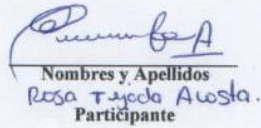 Nombres y Apellidos
Rosa Tejada Acosta.
Participante